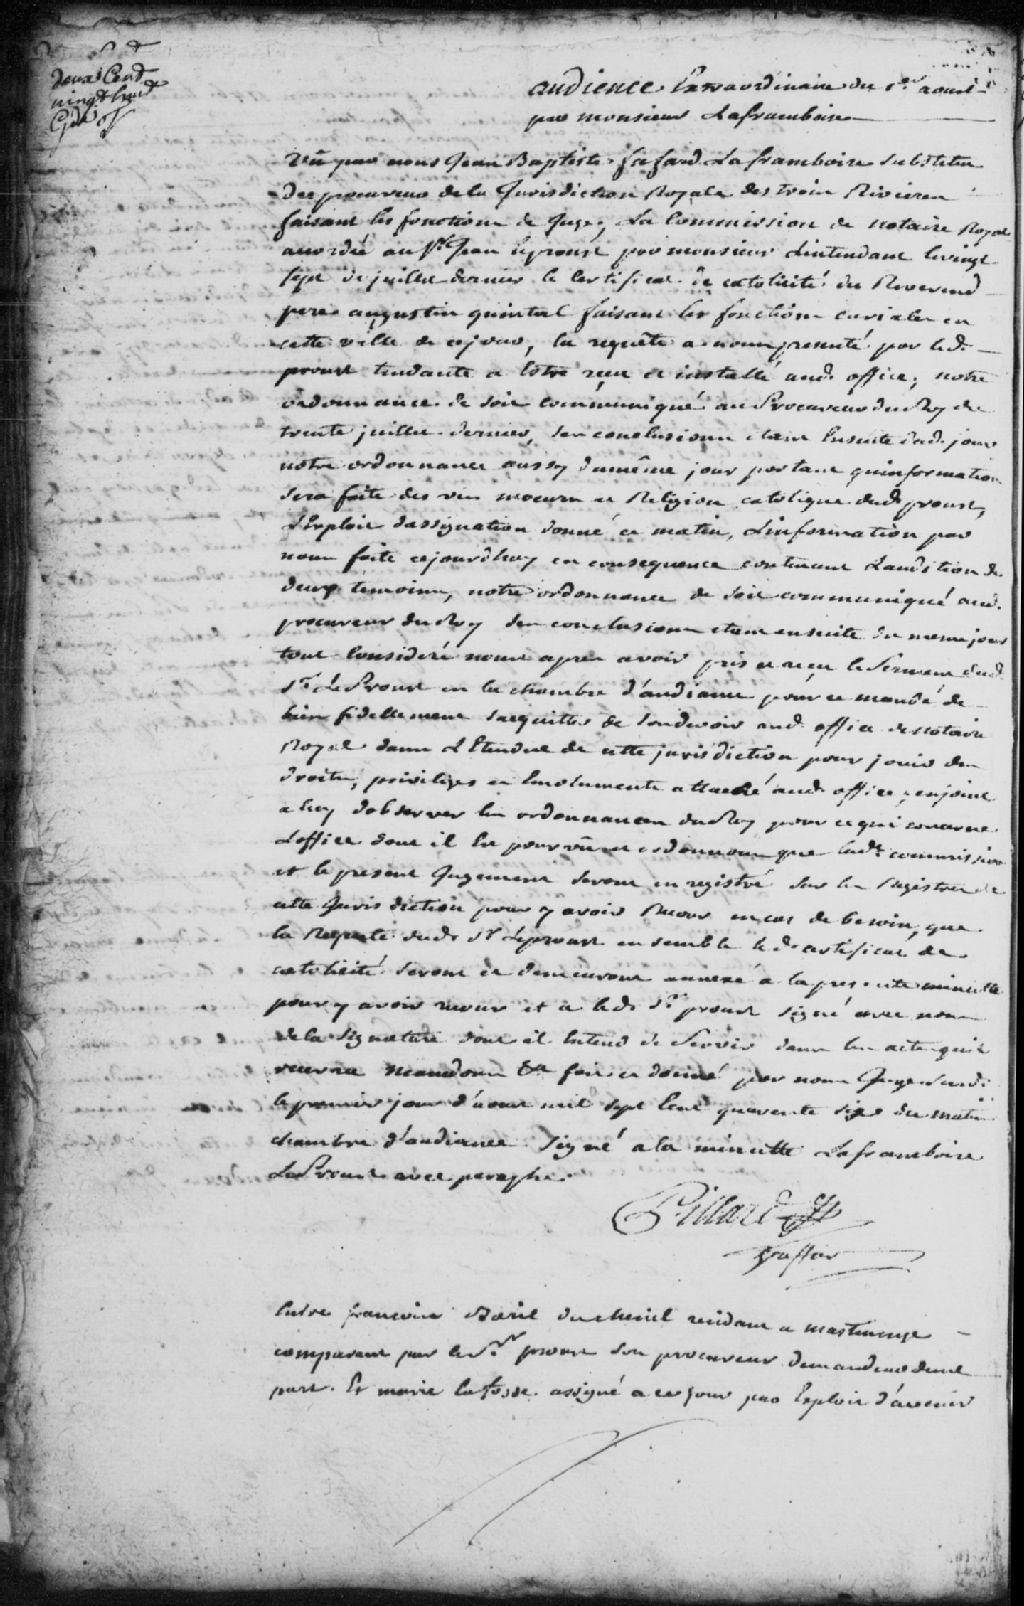 deux Cent
vingt huit
audience Extraordinaire du 1er aoust
par monsieur Laframboise
Vû par nous Jean Baptiste fafard Laframboise substitut
du procureur de la Jurisdiction Royale des trois Rivieres
faisant les fonctions de Juge, La Commission de notaire Royal
accordée au Sr. Jean leproust par monsieur Lintendant le vingt
sept de juillet dernier le Certificat de catolicité du Reverend
pere augustin quintal faisant les fonctions curiales en
cette ville de ce jour, la requête a nous presenté par led.
proust tendante a Estre reçu et installé aud. office, notre
ordonnance de soit communiqué au Procureur du Roy du
trente juillet dernier, ses conclusions etant Ensuite dud. jour
notre ordonnance aussy du même jour portant quinformation
sera faite des vie moeurs et Religion catolique dud. proust,
L'Exploit dassignation donné ce matin, Linformation par
nous faite cejourdhuy en consequence contenant Laudition de
deux temoins, notre ordonnance de soit communiqué aud.
procureur du Roy ses conclusions etant ensuite du meme jour
tout Consideré nous apres avoir pris et reçu le Serment dud.
Sr. Le Proust en la chambre d'audiance pour ce mandé de
bien fidellement sacquitter de son devoir aud. office de notaire
Royal dans L'Etendue de cette jurisdiction pour jouir des
droits, privileges et Emoluments attaché aud. office, enjoint
a luy dobserver les ordonnances du Roy pour ce qui concerne
Loffice dont il Est pourvû et ordonnons que lad. commission
et le present Jugement seront enregistré sur les Registres de
cette Jurisdiction pour y avoir Recours en cas de besoin, que
la Requete dud. Sr. Leproust ensemble led. certificat de
catolicité seront et demeuront annexé a la presente minutte
pour y avoir recours et a led. Sr. proust signé avec nous
de la signature dont il Entend se Servir dans les actes quil
recevra Mandons &a fait et donné par nous Juge susd.
le premier jour d'aoust mil sept Cent quarente six du matin
chambre d'audiance signé a la minutte Laframboise
Le Proust avec paraphe.
Pillard
Greffier
Entre francois Baril duchenil residant a mastinongé
comparant par le Sr. proust son procureur demandeur dune
part. Et marie lafosse assigné a ce jour par Exploit d'avenir